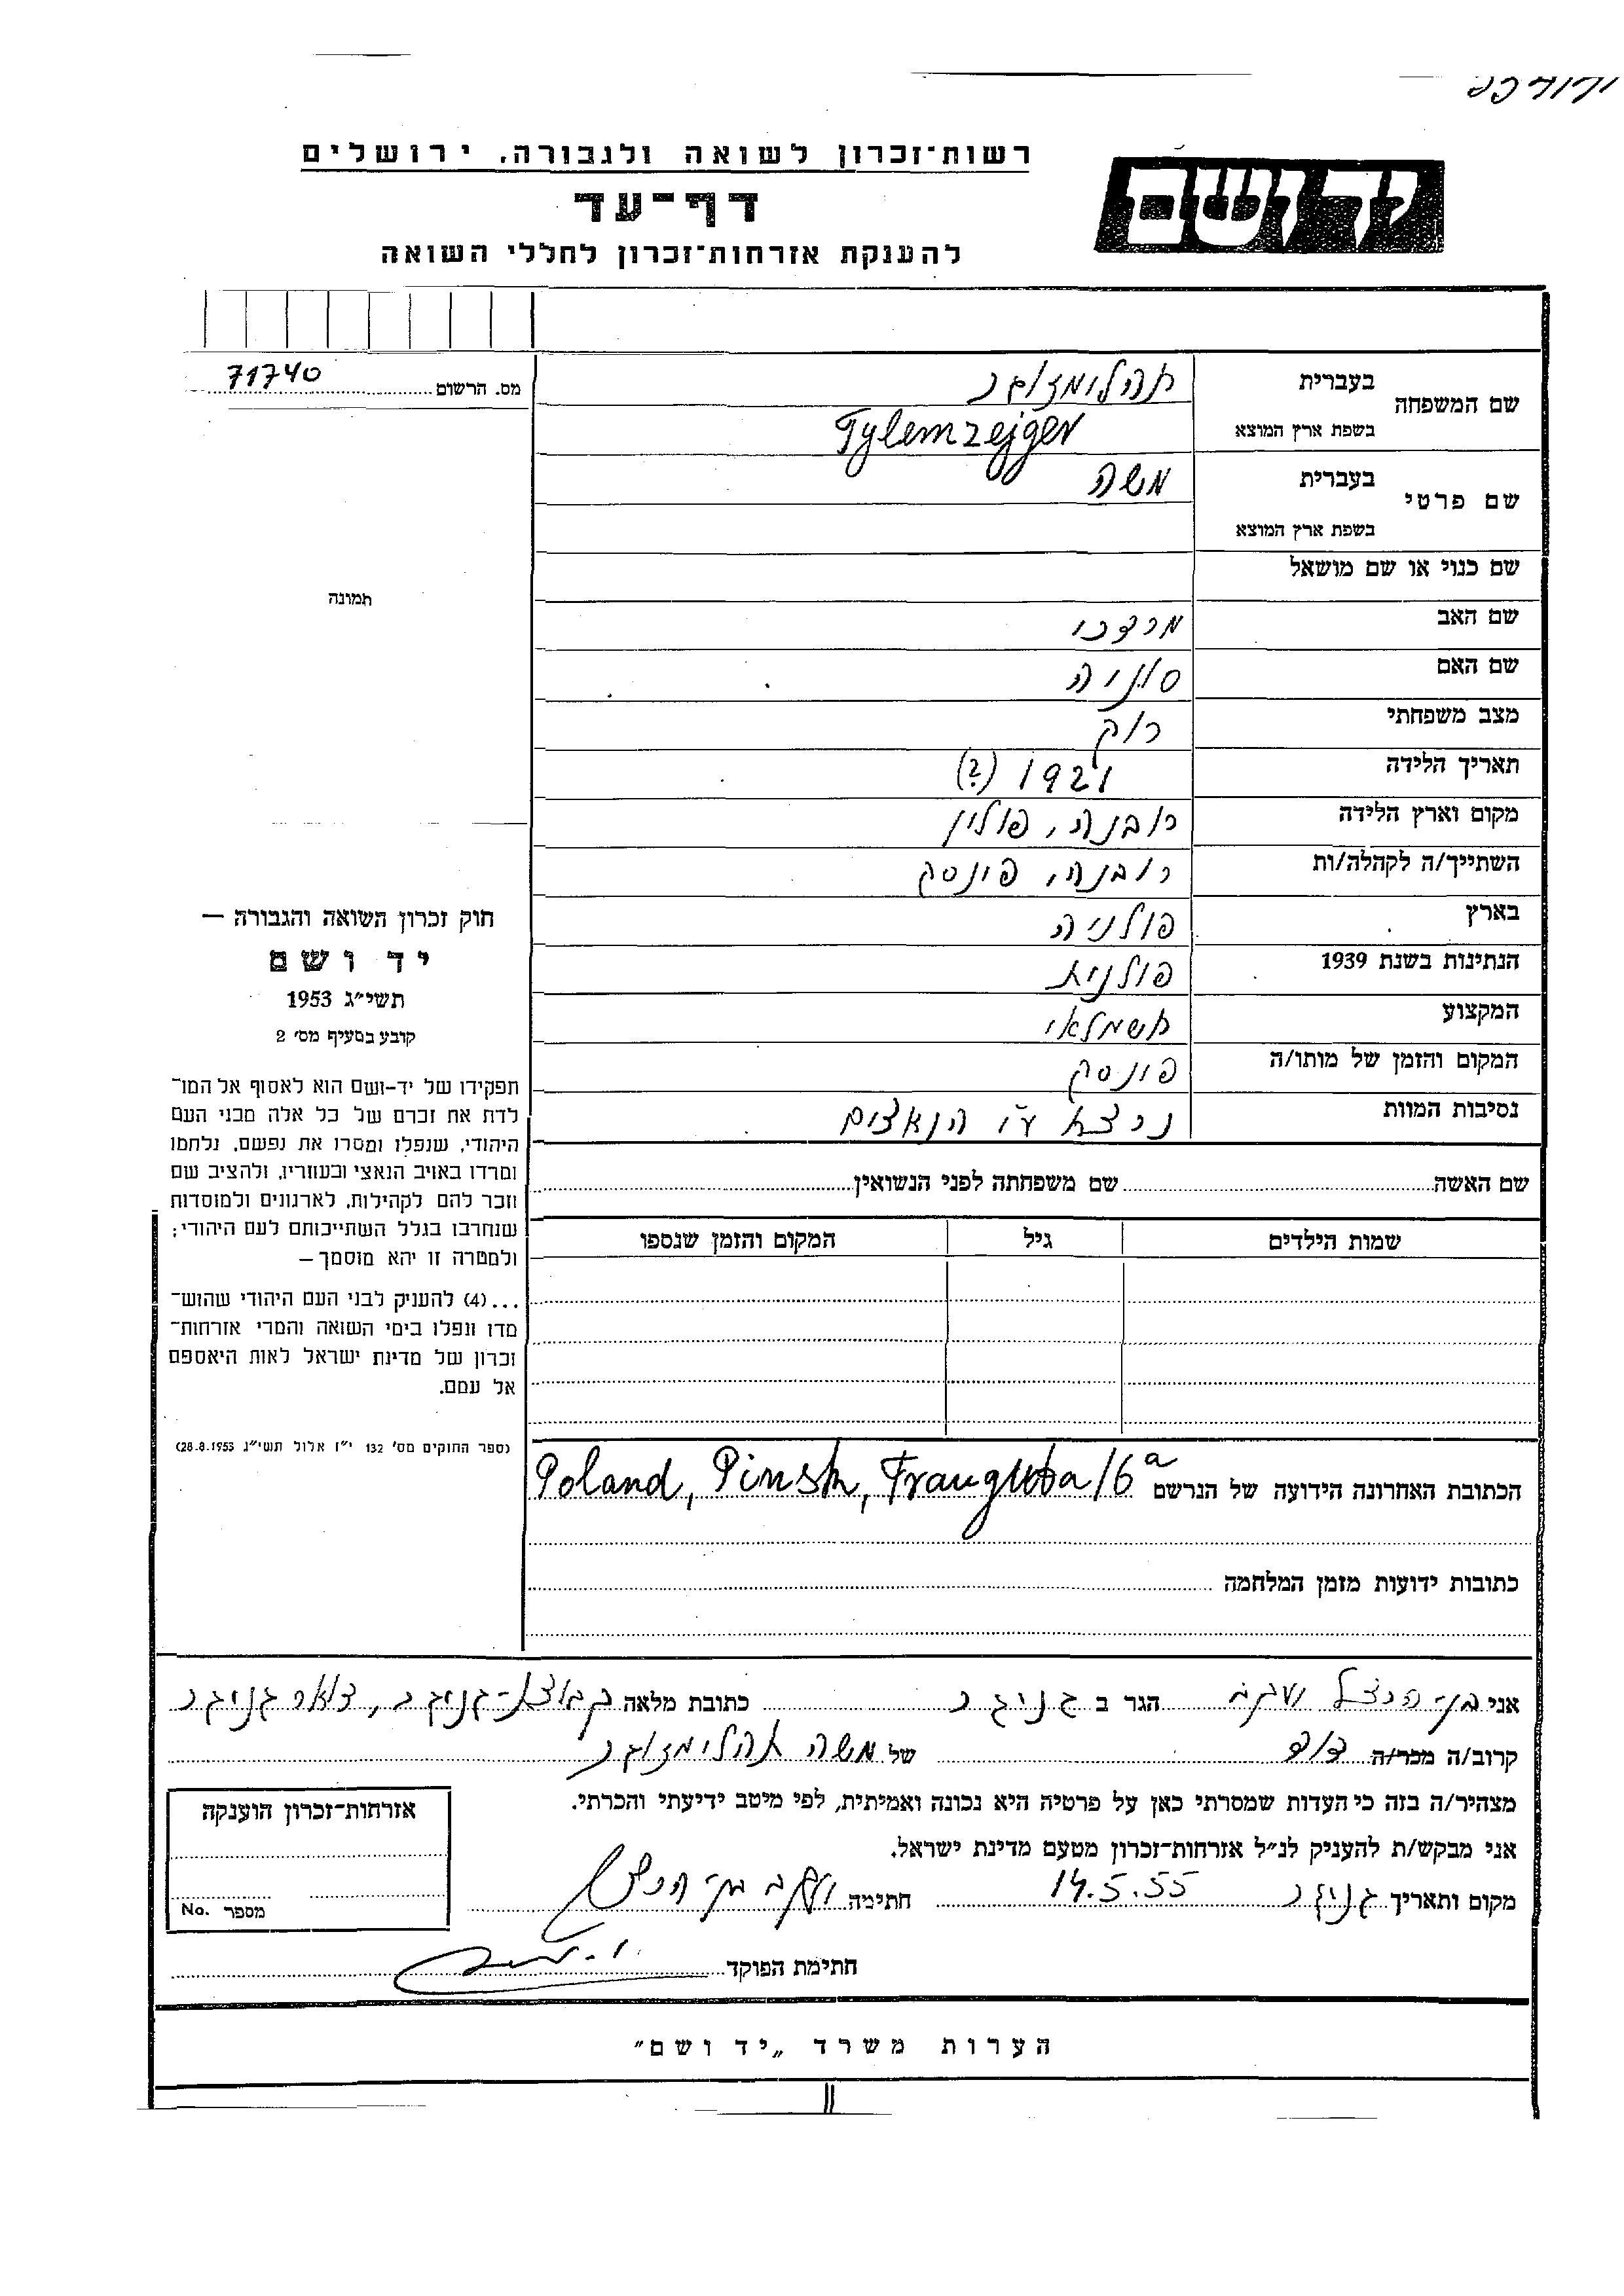 רשות־זכרון לשואה ולגבורה, ירושלים
יד ושם
דף־עד
להענקת אזרחות־זכרון לחללי השואה
מס. הרשום 71740
שם המשפחה
בעברית
בשפת ארץ המוצא Tylemzejger
שם פרטי
בעברית משה
בשפת ארץ המוצא
שם כנוי או שם מושאל
תמונה
שם האב מרדכי
שם האם סוניה
מצב משפחתי רוק
תאריך הלידה 1921 (?)
מקום וארץ הלידה רובנה, פולין
השתייך/ה לקהלה/ות רובנה, פינסק
בארץ פולניה
הנתינות בשנת 1939 פולנית
המקצוע חשמלאי
המקום והזמן של מותו/ה פינסק
נסיבות המוות נרצח ע״י הנאצים
חוק זכרון השואה והגבורה —
יד ושם
תשי״ג 1953
קובע בסעיף מס׳ 2
תפקידו של יד־ושם הוא לאסוף אל המו־
לדת את זכרם של כל אלה מבני העם
היהודי, שנפלו ומסרו את נפשם, נלחמו
ומרדו באויב הנאצי ובעוזריו, ולהציב שם
וזכר להם לקהילות, לארגונים ולמוסדות
שנחרבו בגלל השתייכותם לעם היהודי;
ולמטרה זו יהא מוסמך —
...(4) להעניק לבני העם היהודי שהוש־
מדו ונפלו בימי השואה והמרי אזרחות־
זכרון של מדינת ישראל לאות היאספם
אל עמם.
(ספר החוקים מס׳ 132 י״ז אלול תשי״ג 28.8.1953)
שם האשה שם משפחתה לפני הנשואין
שמות הילדים גיל המקום והזמן שנספו
הכתובת האחרונה הידועה של הנרשם Poland, Pinsk, 16a
כתובות ידועות מזמן המלחמה
אני בן־הרצל יעקב הגר ב גניגר כתובת מלאה קבוצת־גניגר, דואר גניגר
קרוב/ה מכר/ה דוד של משה
מצהיר/ה בזה כי העדות שמסרתי כאן על פרטיה היא נכונה ואמיתית, לפי מיטב ידיעתי והכרתי.
אני מבקש/ת להעניק לנ״ל אזרחות־זכרון מטעם מדינת ישראל.
מקום ותאריך גניגר 14.5.55 חתימה יעקב בן־הרצל
חתימת הפוקד
אזרחות־זכרון הוענקה
מספר No.
הערות משרד „יד ושם״